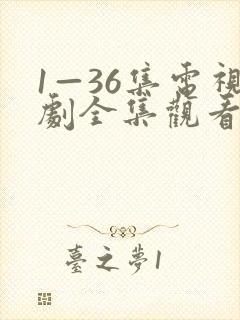 1—36集電視
劇全集觀看
臺之夢1